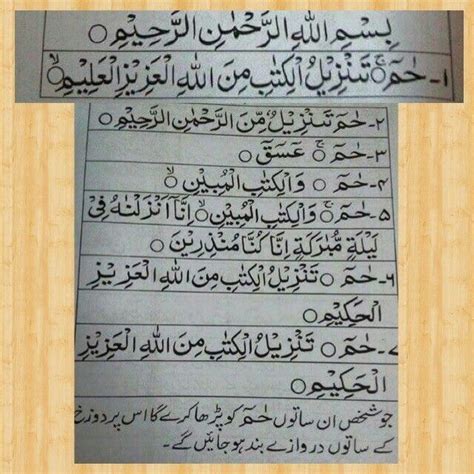 بِسْمِ اللهِ الرَّحْمٰنِ الرَّحِيْمِ ○
۱- حٰمٓ ○ۚ تَنْزِيْلُ الْكِتٰبِ مِنَ اللهِ الْعَزِيْزِ الْعَلِيْمِ ○ۙ
۲- حٰمٓ تَنْزِيْلٌ مِّنَ الرَّحْمٰنِ الرَّحِيْمِ ○
۳- حٰمٓ ○ۚ عٓسٓقٓ ○
۴- حٰمٓ ○ وَالْكِتٰبِ الْمُبِيْنِ ○ۙ
۵- حٰمٓ ○ۚ وَالْكِتٰبِ الْمُبِيْنِ ○ۙ اِنَّآ اَنْزَلْنٰهُ فِيْ
لَيْلَةٍ مُّبٰرَكَةٍ اِنَّا كُنَّا مُنْذِرِيْنَ ○
۶- حٰمٓ ○ تَنْزِيْلُ الْكِتٰبِ مِنَ اللهِ الْعَزِيْزِ
الْحَكِيْمِ ○
۷- حٰمٓ ○ تَنْزِيْلُ الْكِتٰبِ مِنَ اللهِ الْعَزِيْزِ
الْحَكِيْمِ ○
جو شخص ان ساتوں حٰمٓ کو پڑھا کرے گا اس پر دوزخ
کے ساتوں دروازے بند ہو جائیں گے۔